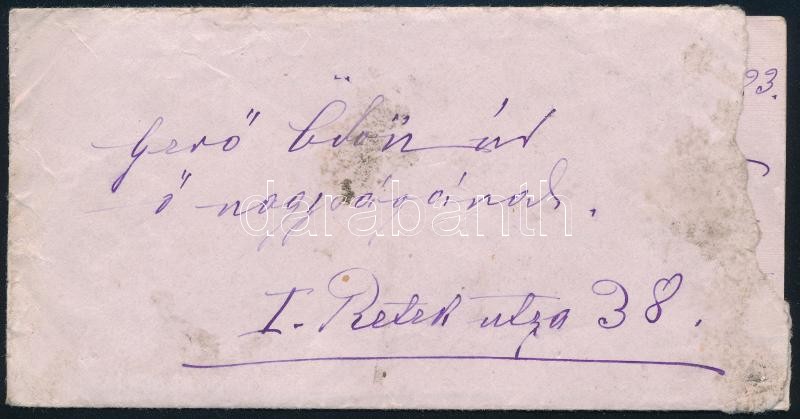 Gerő Ödön úr
ő nagyságának.
I. Retek utza 38.
23.
darabanth